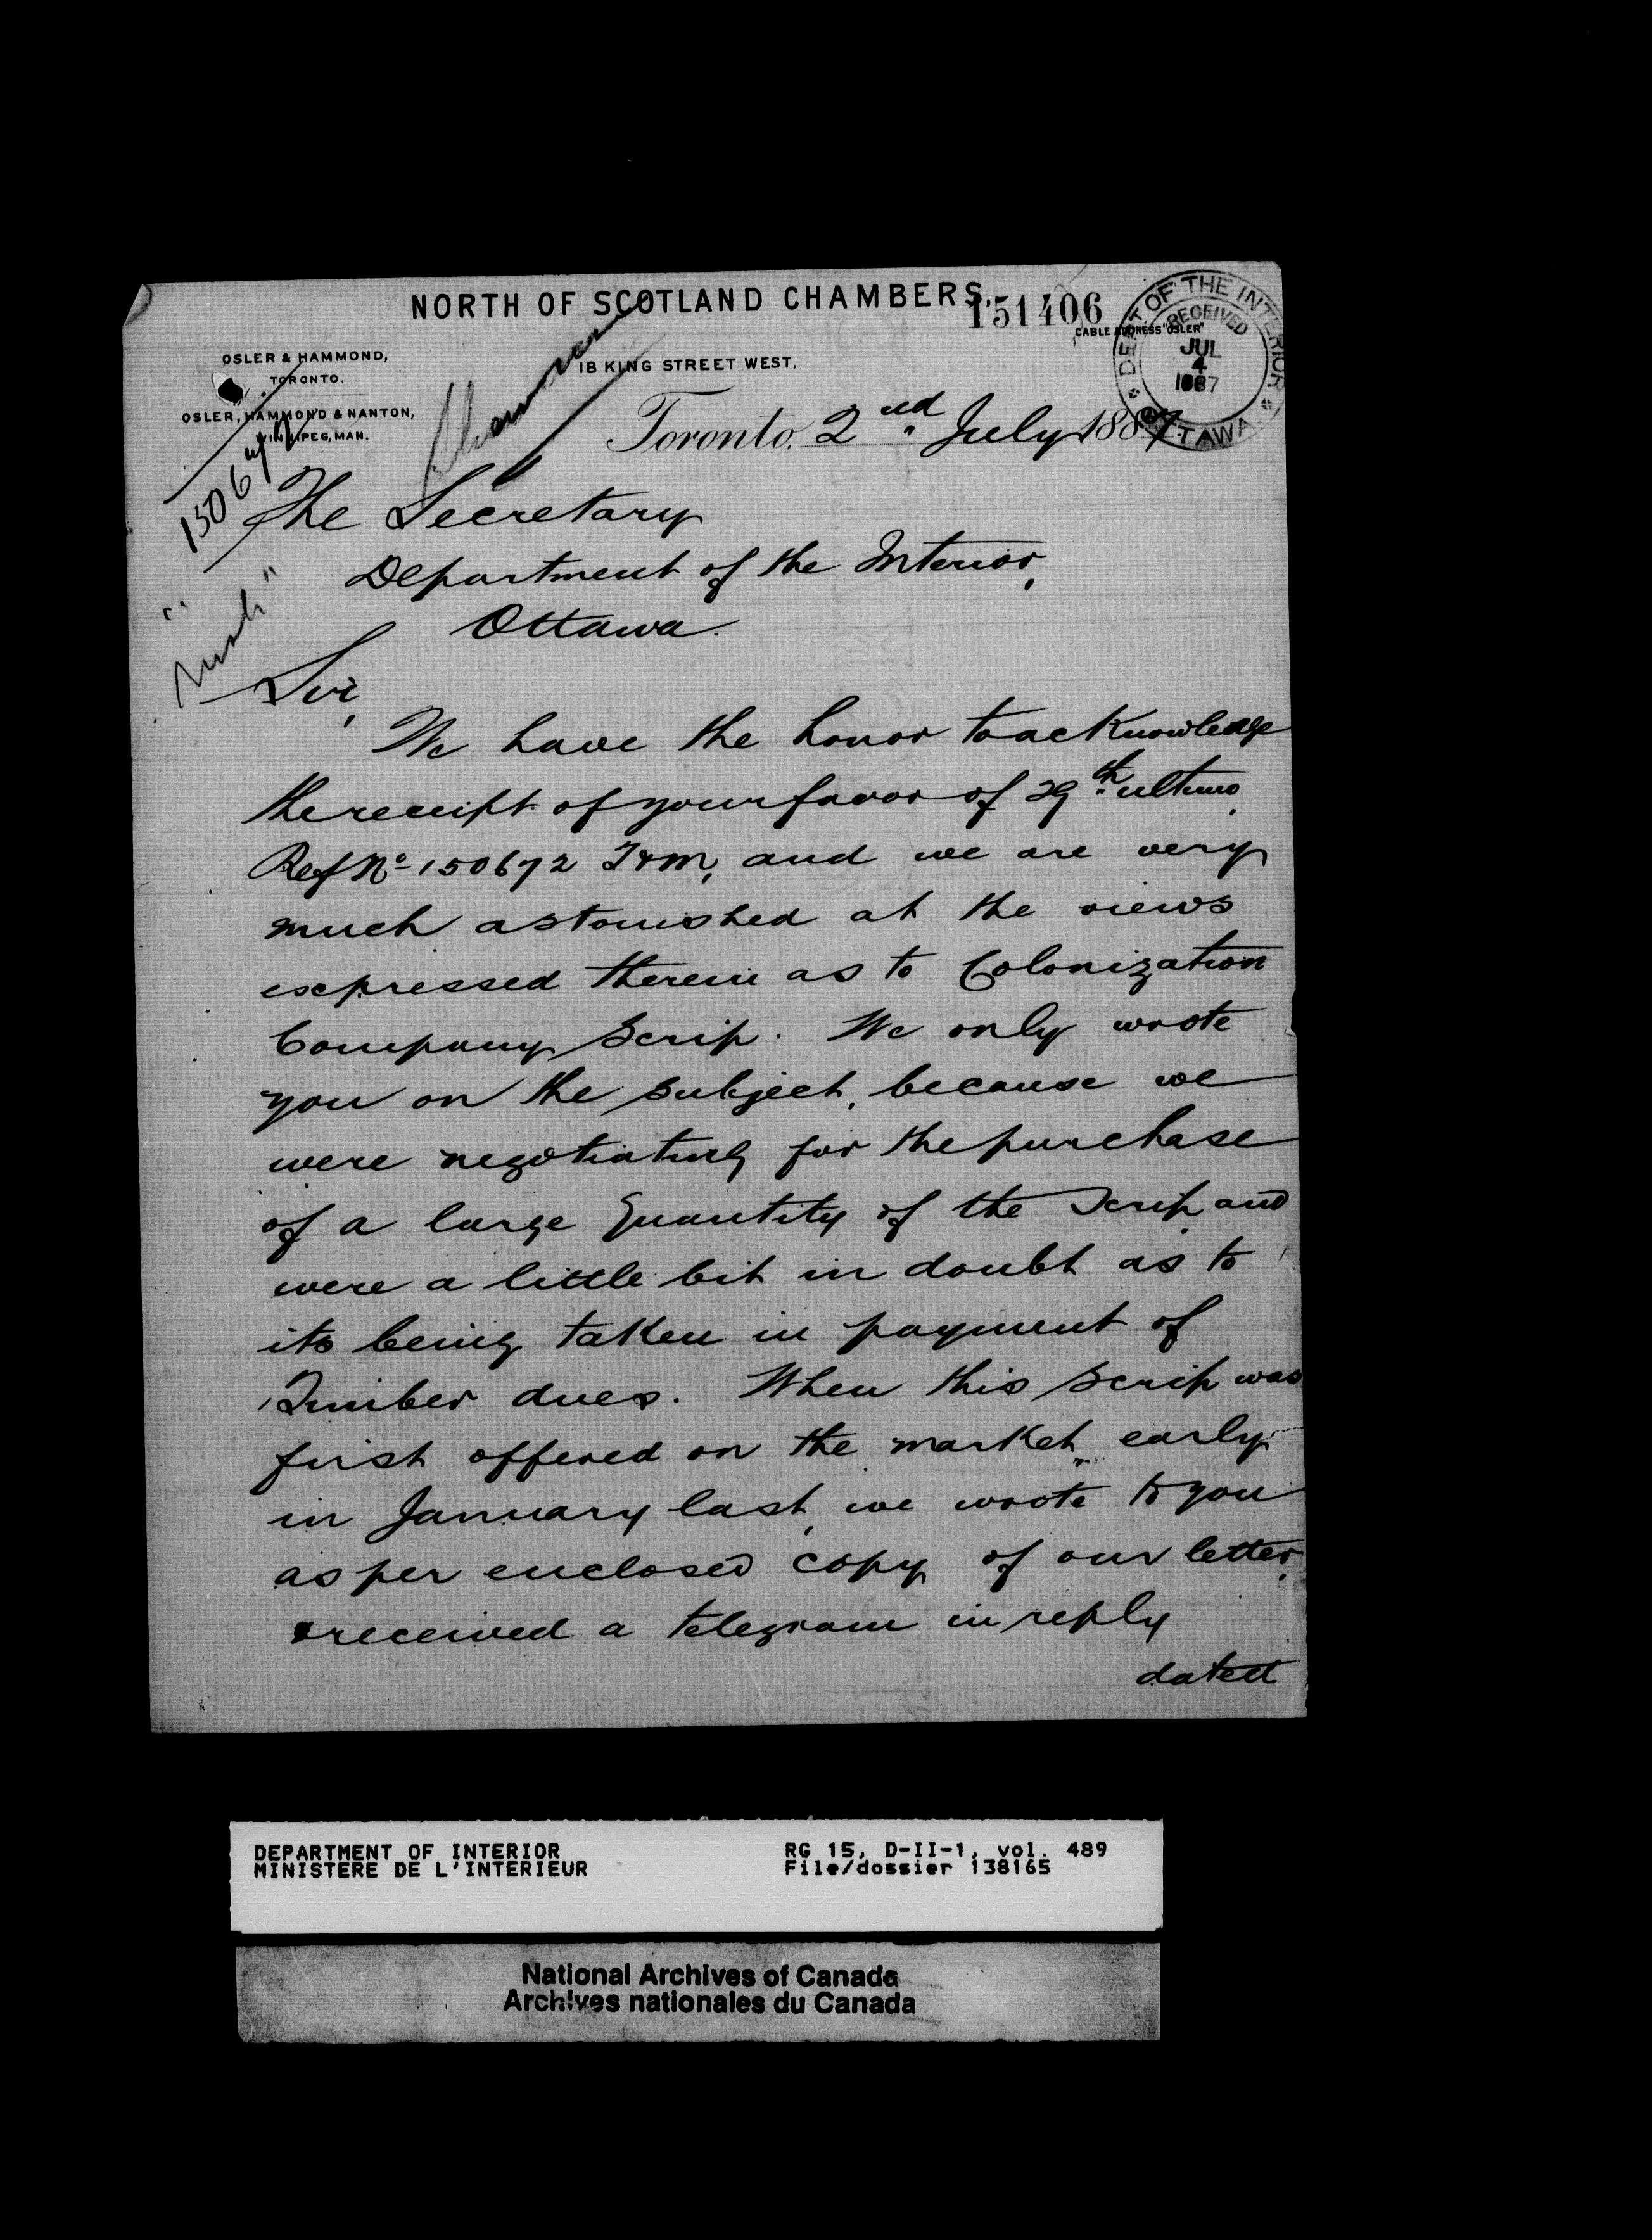 NORTH OF SCOTLAND CHAMBERS,
151406
CABLE ADDRESS "OSLER"
DEPT OF THE INTERIOR
RECEIVED
JUL
4
1887
OTTAWA
OSLER & HAMMOND,
TORONTO.
OSLER, HAMMOND & NANTON,
WINNIPEG, MAN.
18 KING STREET WEST,
Toronto, 2nd July 1887
150672
The Secretary
Department of the Interior,
Ottawa.
Sir,
We have the honor to acknowledge
the receipt of your favor of 29th ultimo
Ref No 150672 T&M, and we are very
much astonished at the views
expressed therein as to Colonization
Company Scrip. We only wrote
you on the subject, because we
were negotiating for the purchase
of a large Quantity of the Scrip and
were a little bit in doubt as to
its being taken in payment of
Timber dues. When this Scrip was
first offered on the market, early
in January last, we wrote to you
as per enclosed copy of our letter,
& received a telegram in reply
dated
DEPARTMENT OF INTERIOR
MINISTERE DE L'INTERIEUR
RG 15, D-II-1, vol. 489
File/dossier 138165
National Archives of Canada
Archives nationales du Canada